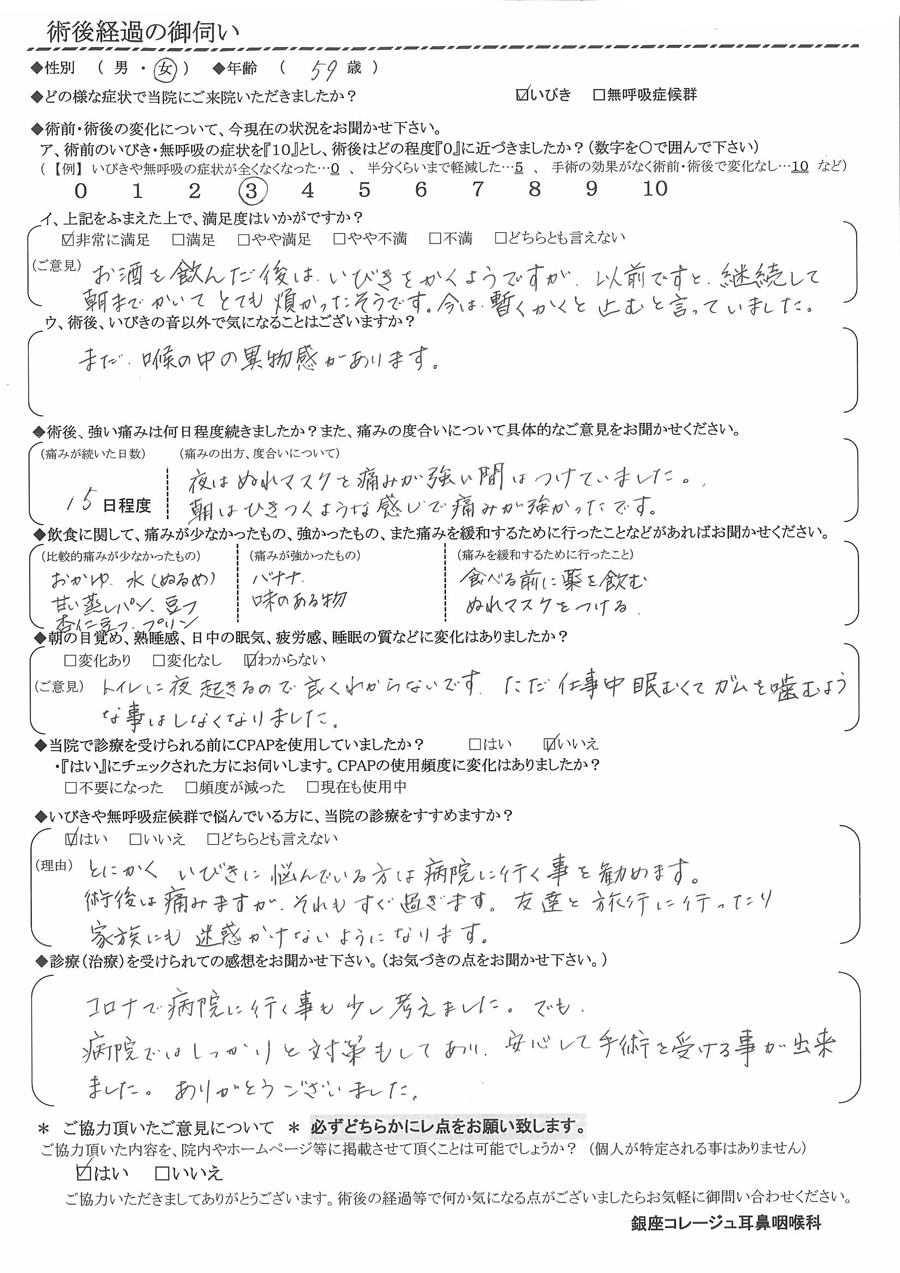 術後経過の御伺い
◆性別 ( 男 ・ 女 ) ◆年齢 ( 59 歳 )
◆どの様な症状で当院にご来院いただきましたか? ☑いびき □無呼吸症候群
◆術前・術後の変化について、今現在の状況をお聞かせ下さい。
ア、術前のいびき・無呼吸の症状を『10』とし、術後はどの程度『0』に近づきましたか?(数字を○で囲んで下さい)
(【例】いびきや無呼吸の症状が全くなくなった…0 、 半分くらいまで軽減した…5 、 手術の効果がなく術前・術後で変化なし…10 など)
0 1 2 3 4 5 6 7 8 9 10
イ、上記をふまえた上で、満足度はいかがですか?
☑非常に満足 □満足 □やや満足 □やや不満 □不満 □どちらとも言えない
(ご意見) お酒を飲んだ後は、いびきをかくようですが、以前ですと、継続して
朝までかいてとても煩かったそうです。今は、暫くかくと止むと言っていました。
ウ、術後、いびきの音以外で気になることはございますか?
まだ、喉の中の異物感があります。
◆術後、強い痛みは何日程度続きましたか?また、痛みの度合いについて具体的なご意見をお聞かせください。
(痛みが続いた日数) (痛みの出方、度合いについて)
夜はぬれマスクを痛みが強い間はつけていました。
15 日程度
朝はひきつくような感じで痛みが強かったです。
◆飲食に関して、痛みが少なかったもの、強かったもの、また痛みを緩和するために行ったことなどがあればお聞かせください。
(比較的痛みが少なかったもの) (痛みが強かったもの) (痛みを緩和するために行ったこと)
おかゆ、水(ぬるめ) バナナ、 食べる前に薬を飲む
甘い蒸しパン、豆フ 味のある物 ぬれマスクをつける
杏仁豆フ、プリン
◆朝の目覚め、熟睡感、日中の眠気、疲労感、睡眠の質などに変化はありましたか?
□変化あり □変化なし ☑わからない
(ご意見) トイレに夜起きるので良くわからないです。ただ仕事中眠むくてガムを噛むよう
な事はしなくなりました。
◆当院で診療を受けられる前にCPAPを使用していましたか? □はい ☑いいえ
・『はい』にチェックされた方にお伺いします。CPAPの使用頻度に変化はありましたか?
□不要になった □頻度が減った □現在も使用中
◆いびきや無呼吸症候群で悩んでいる方に、当院の診療をすすめますか?
☑はい □いいえ □どちらとも言えない
(理由) とにかく いびきに悩んでいる方は病院に行く事を勧めます。
術後は痛みますが、それもすぐ過ぎます。友達と旅行に行ったり
家族にも迷惑かけないようになります。
◆診療(治療)を受けられての感想をお聞かせ下さい。(お気づきの点をお聞かせ下さい。)
コロナで病院に行く事も少し考えました。でも、
病院ではしっかりと対策もしてあり、安心して手術を受ける事が出来
ました。ありがとうございました。
* ご協力頂いたご意見について * 必ずどちらかにレ点をお願い致します。
ご協力頂いた内容を、院内やホームページ等に掲載させて頂くことは可能でしょうか? (個人が特定される事はありません)
☑はい □いいえ
ご協力いただきましてありがとうございます。術後の経過等で何か気になる点がございましたらお気軽に御問い合わせください。
銀座コレージュ耳鼻咽喉科